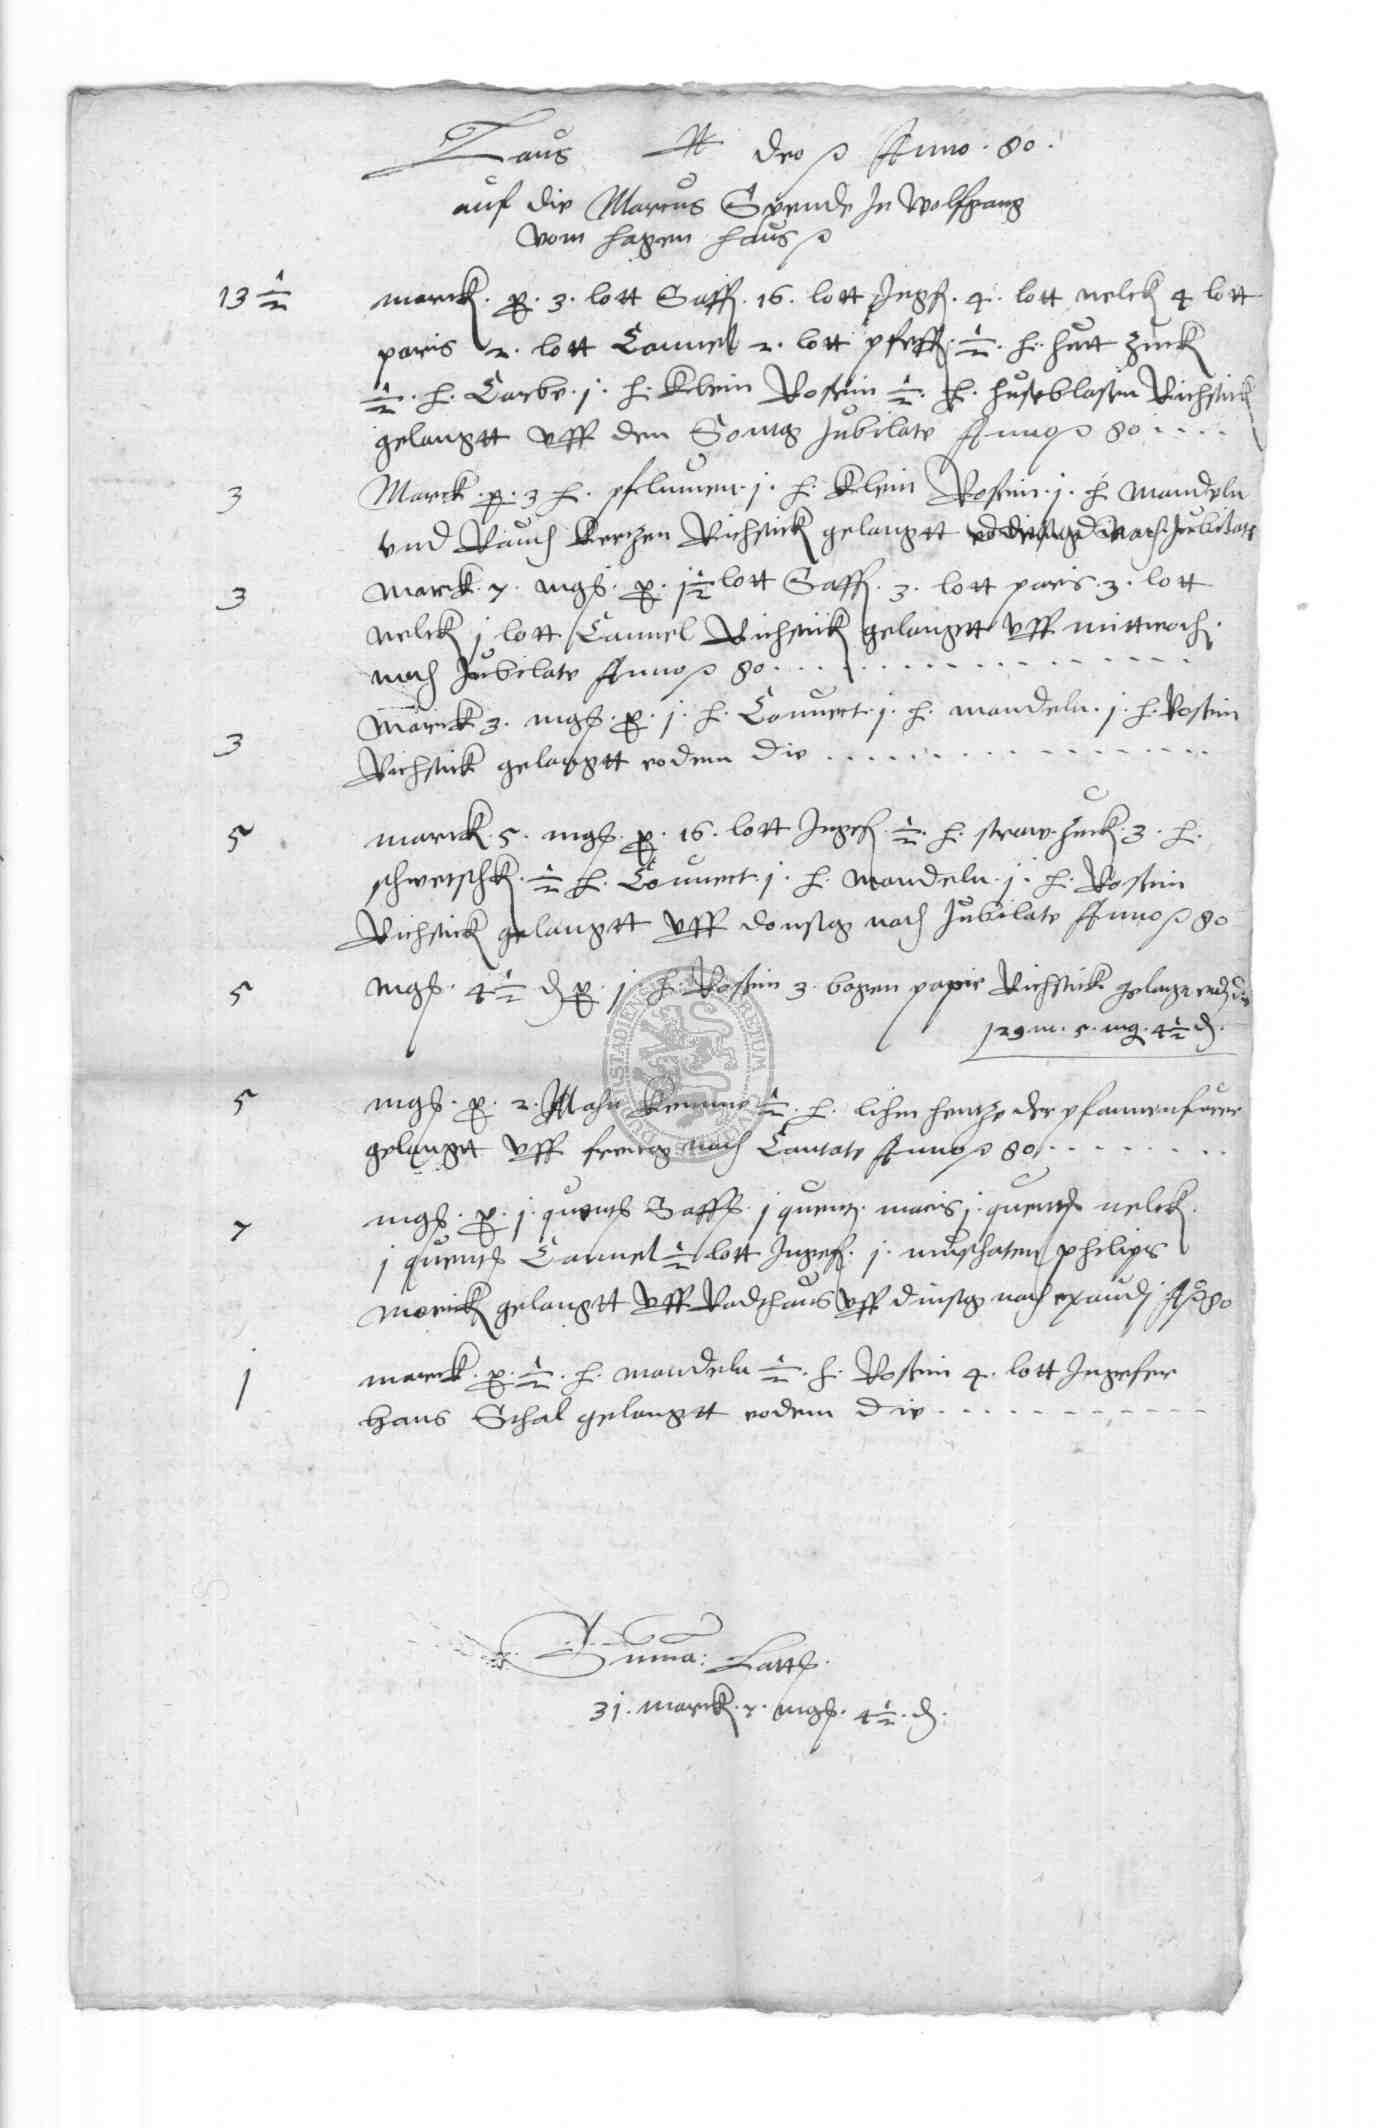 Laus deo Anno . 80 .
auf die Marcus Spende In Wolfgang
vom hagen haus
13 1/2 marck . p . 3 . lott Saff . 16 . lott Ingf . 4 . lott nelck 4 lott
paris 2 . lott Cannel 2 . lott pfeff . 1/2 . h . hutt Zuck
1/2 . h . Carbe . j . h . Klein Rosein 1/2 . h . huseblasen Richstick
gelangtt vff den Sontg Jubilate Anno 80 . . . .
3 Marck . p . 3 h . pflumen . j . h . Klein Rosein . j . h Mandeln
vnd Rauch Kertzen Richstick gelangtt nach Jubilate
3 Marck . 7 . mgß . p . j 1/2 lott Saff . 3 . lott paris . 3 . lott
nelck j lott Cannel Richstick gelangtt vff mittwoch .
nach Jubilate Anno 80 . . . .
3 Marck 3 . mgß . p . j . h . Confect . j . h . mandeln . j . h . Rosein
Richstick gelangtt eodem die . . . .
5 marck . 5 . mgß . p . 16 . lott Ingef . 1/2 . h . straw Zuck . 3 . h .
schwetschk . 1/2 h . Confect . j . h . Mandeln . j . h . Rosein
Richstick gelangtt vff donstg nach Jubilate Anno 80
5 mgß . 4 1/2 d p . j . h . Rosein 3 . bogen papir Richstick gelangt
29 m . 5 . mg . 4 1/2 d .
5 mgß . p . 2 . 1/2 . h . der pfannen
gelangtt vff freitag nach Cantate Anno 80 . . . .
7 mgß . p . j . quentß Saff . j quent . maris j . quentß nelck .
j quentß Cannel 1/2 lott Ingef . j . muschaten philips
Marick gelangtt vff Radthaus vff dinstg nach exaudj Ao 80
j marck . p . 1/2 . h . mandeln 1/2 . h . Rosein 4 . lott Ingefer
hans Schal gelangtt eodem die . . . .
Suma : Lattß .
3j . marck . 7 . mgß . 4 1/2 . d .